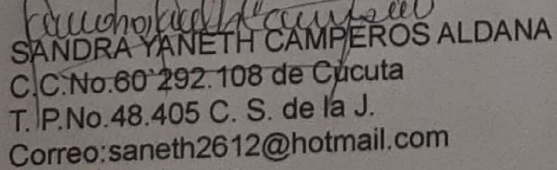 SANDRA YANETH CAMPEROS ALDANA
C.C.No.60'292.108 de Cúcuta
T. P.No.48.405 C. S. de la J.
Correo:saneth2612@hotmail.com